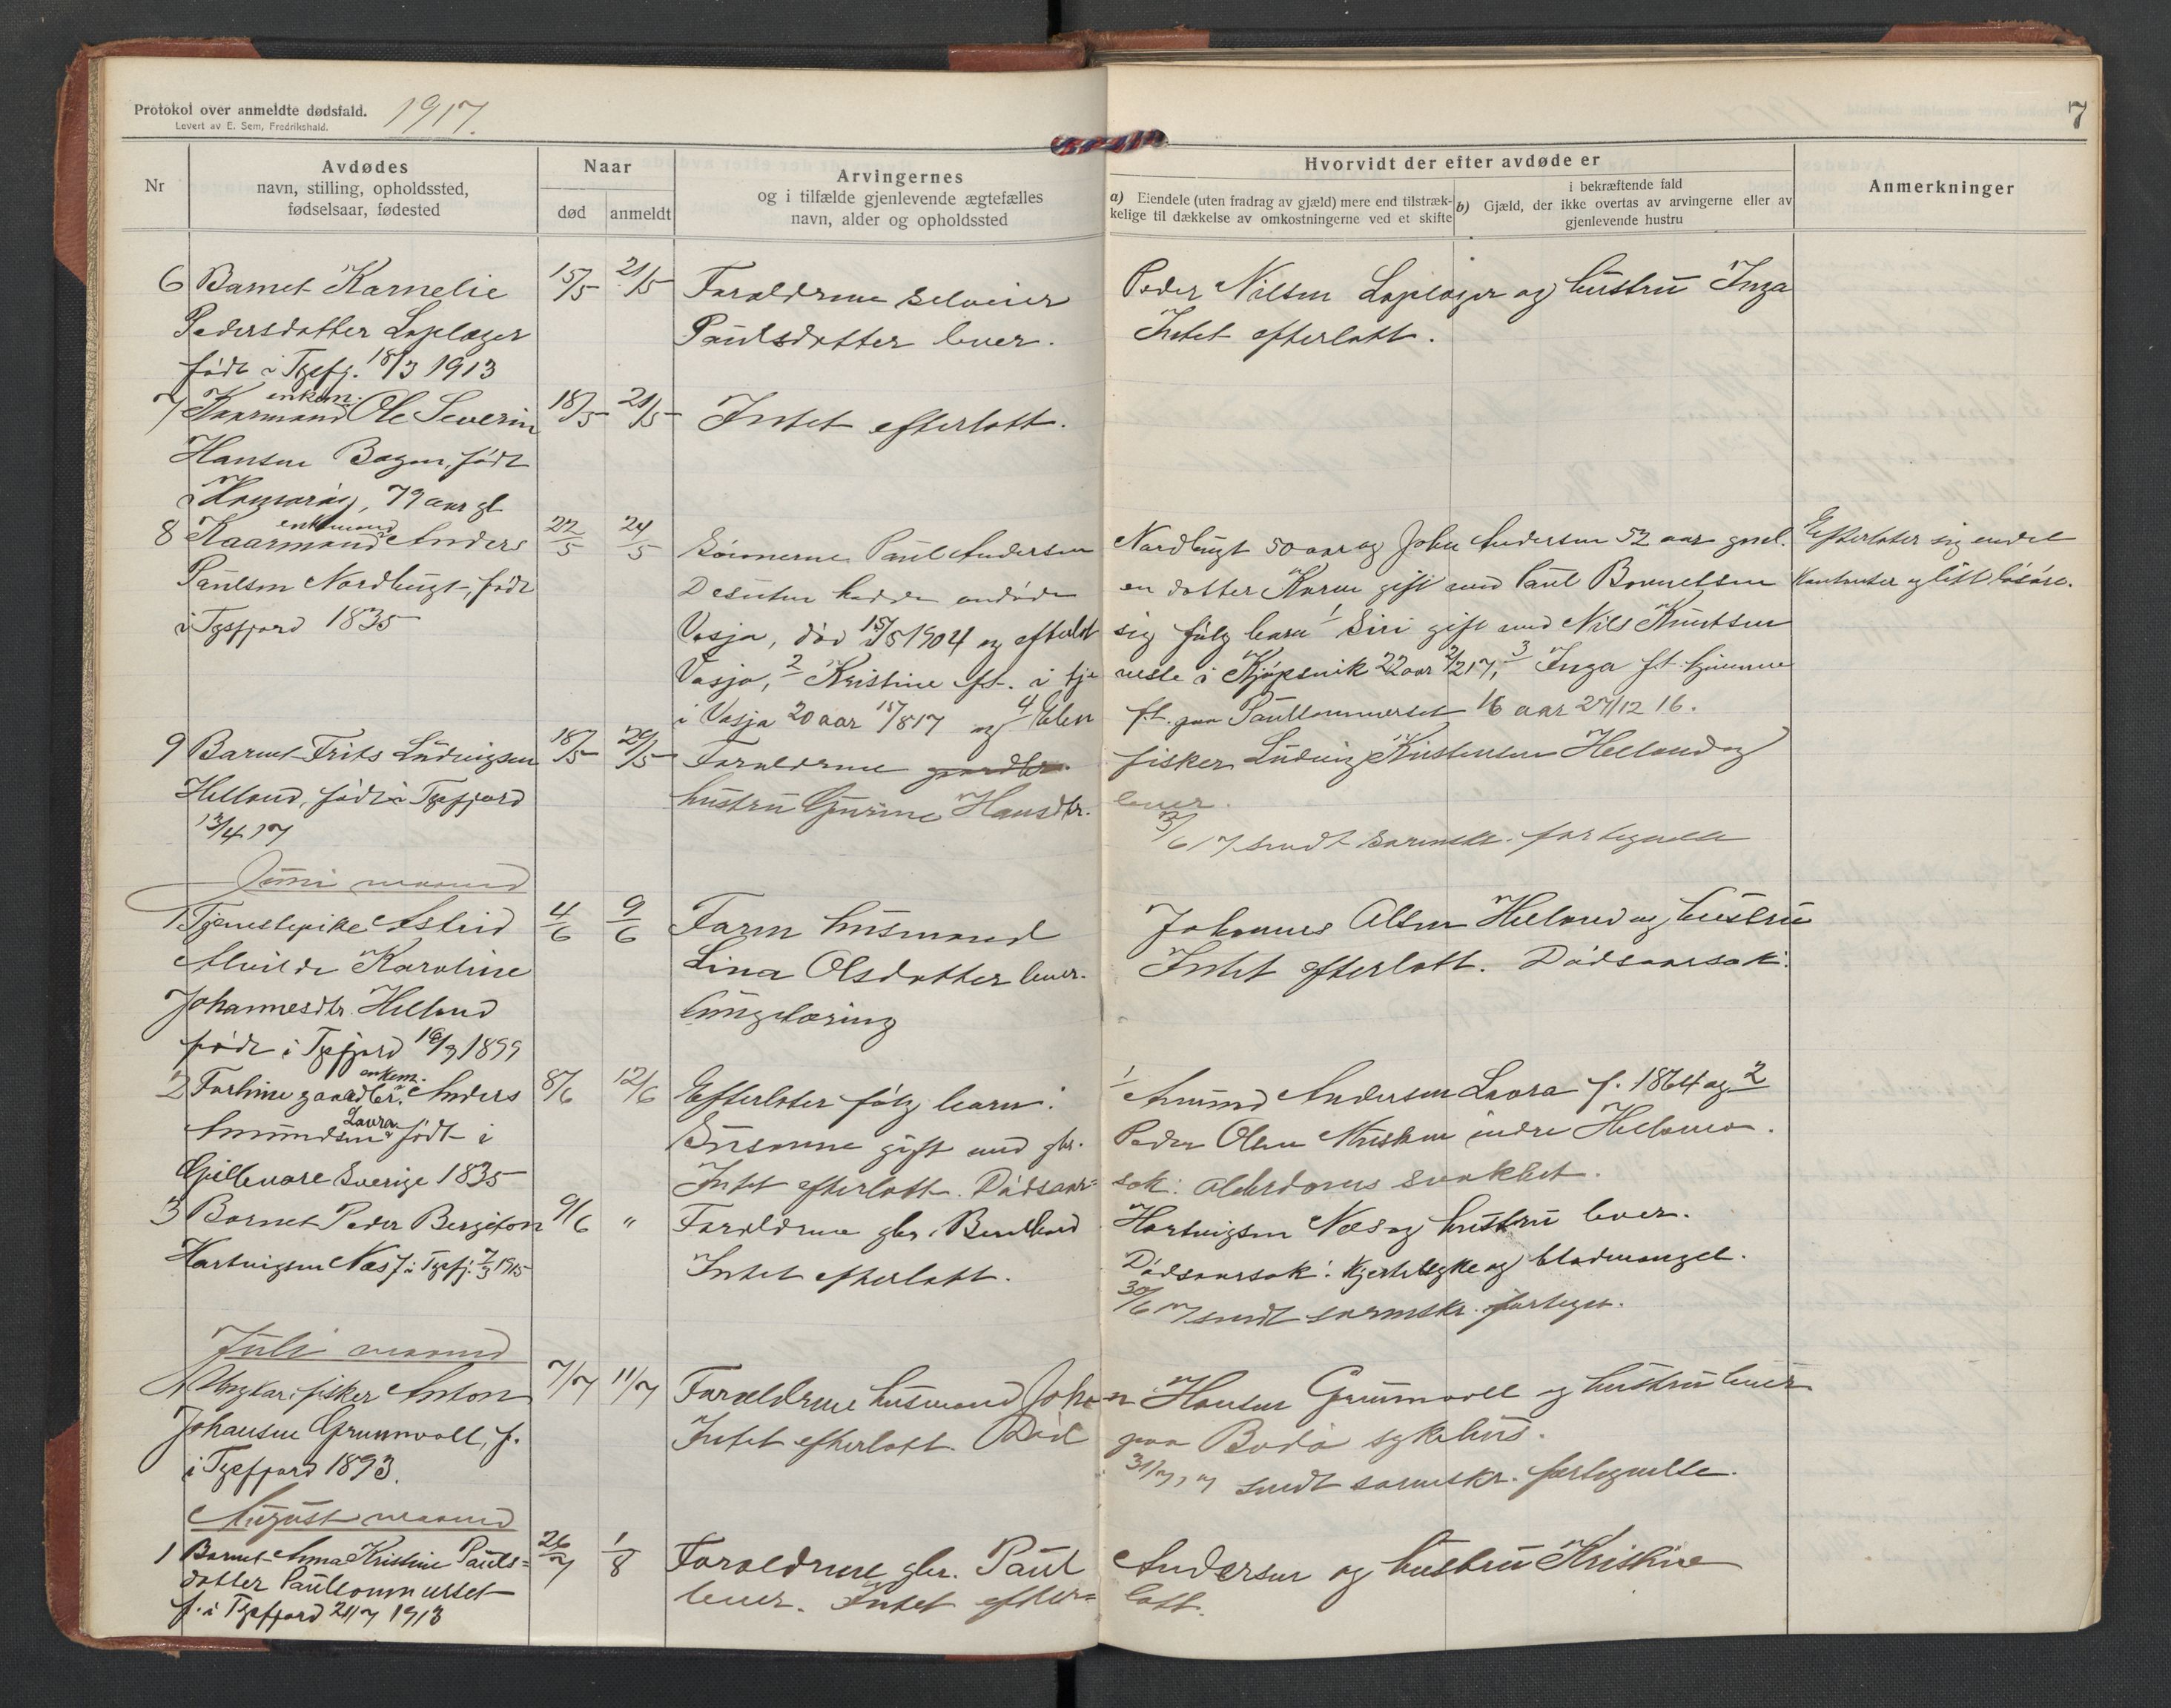 Protokol over anmeldte dødsfald. 1917.
Levert av E. Sem, Fredrikshald.
7
Nr
Avdødes
navn, stilling, opholdssted,
fødselsaar, fødested
Naar
død
anmeldt
Arvingernes
og i tilfælde gjenlevende ægtefælles
navn, alder og opholdssted
Hvorvidt der efter avdøde er
a) Eiendele (uten fradrag av gjæld) mere end tilstræk-
kelige til dækkelse av omkostningerne ved et skifte
b) i bekræftende fald
Gjæld, der ikke overtas av arvingerne eller av
gjenlevende hustru
Anmerkninger
6 Barnet Karnelie 15/5 21/5 Forældrene selveier Peder Nilsen Loplager og hustru Inga
Pedersdatter Loplager Paulsdatter lever. Intet efterlatt.
født i Tysfj. 18/3 1913
enkem.
7 Kaarmand Ole Severin 18/5 21/5 Intet efterlatt.
Hansen Bogen, født
i 79 aar gl
enkemand
8 Kaarmand Anders 22/5 24/5 Sönnerne Paul Andersen Nordbugt 50 aar og John Andersen 52 aar Efterlater sig endel
Paulsen Nordbugt, født Desuten hadde avdöde en datter Karen gift med Paul Kontanter og litt lösöre.
i Tysfjord 1835 Vasja, död 15/5 1904 og efterlot sig fölg barn 1 Siri gift med Nils Knutsen
Vasja, 2 Kristine f.t. i tje neste i Kjöpsvik 22 aar 2/2 17, 3 Inga f.t. hjemme
i Vasja 20 aar 15/8 17 og 4 Elen f.t. paa Paulsommerset 16 aar 27/12 16.
9 Barnet Frits Ludvigsen 18/5 29/5 Forældrene fisker Ludvig Kristensen Helland og
Helland, født i Tysfjord hustru Gurine Hansdtr. lever.
13/4 17 3/6 17 sendt sorenskr. fortegnelse
Juni maaned
1 Tjenestepike Astrid 4/6 9/6 Faren husmand Johannes Olsen Helland og hustru
Alvilde Karoline Lina Olsdatter lever. Intet efterlatt. Dödsaarsak:
Johannesdtr. Helland lungetæring
født i Tysfjord 18/9 1899
enkem.
2 Forhen. gaardbr. Anders 8/6 12/6 Efterlater fölg barn: 1 Amund Andersen Laora f. 1864 og 2
Amundsen Laora født i Susanne gift med gbr. Peder Olsen indre Helland.
Gellevare Sverige 1835 Intet efterlatt. Dödsaar= sak: alderdoms svakhet.
3 Barnet Peder Bergiton 9/6 " Forældrene gbr. Hartvigsen Næs og hustru lever.
Hartvigsen Næs f. i Tysfj. 7/3 1915 Intet efterlatt. Dödsaarsak: Kjertelsyke og blodmangel.
30/6 17 sendt sorenskr. fortegn.
Juli maaned
1 Ungkar, fisker Anton 7/7 11/7 Forældrene husmand Johan Hansen Grunnvoll og hustru lever
Johansen Grunnvoll, f. Intet efterlatt. Död paa Bodö sykehus.
i Tysfjord 1893. 31/7 17 sendt sorenskr. fortegnelse.
August maaned
1 Barnet Anna Kristine Pauls= 26/7 1/8 Forældrene gbr. Paul Andersen og hustru Kristine
datter Paulsommerset lever. Intet efter= latt.
f. i Tysfjord 21/7 1913